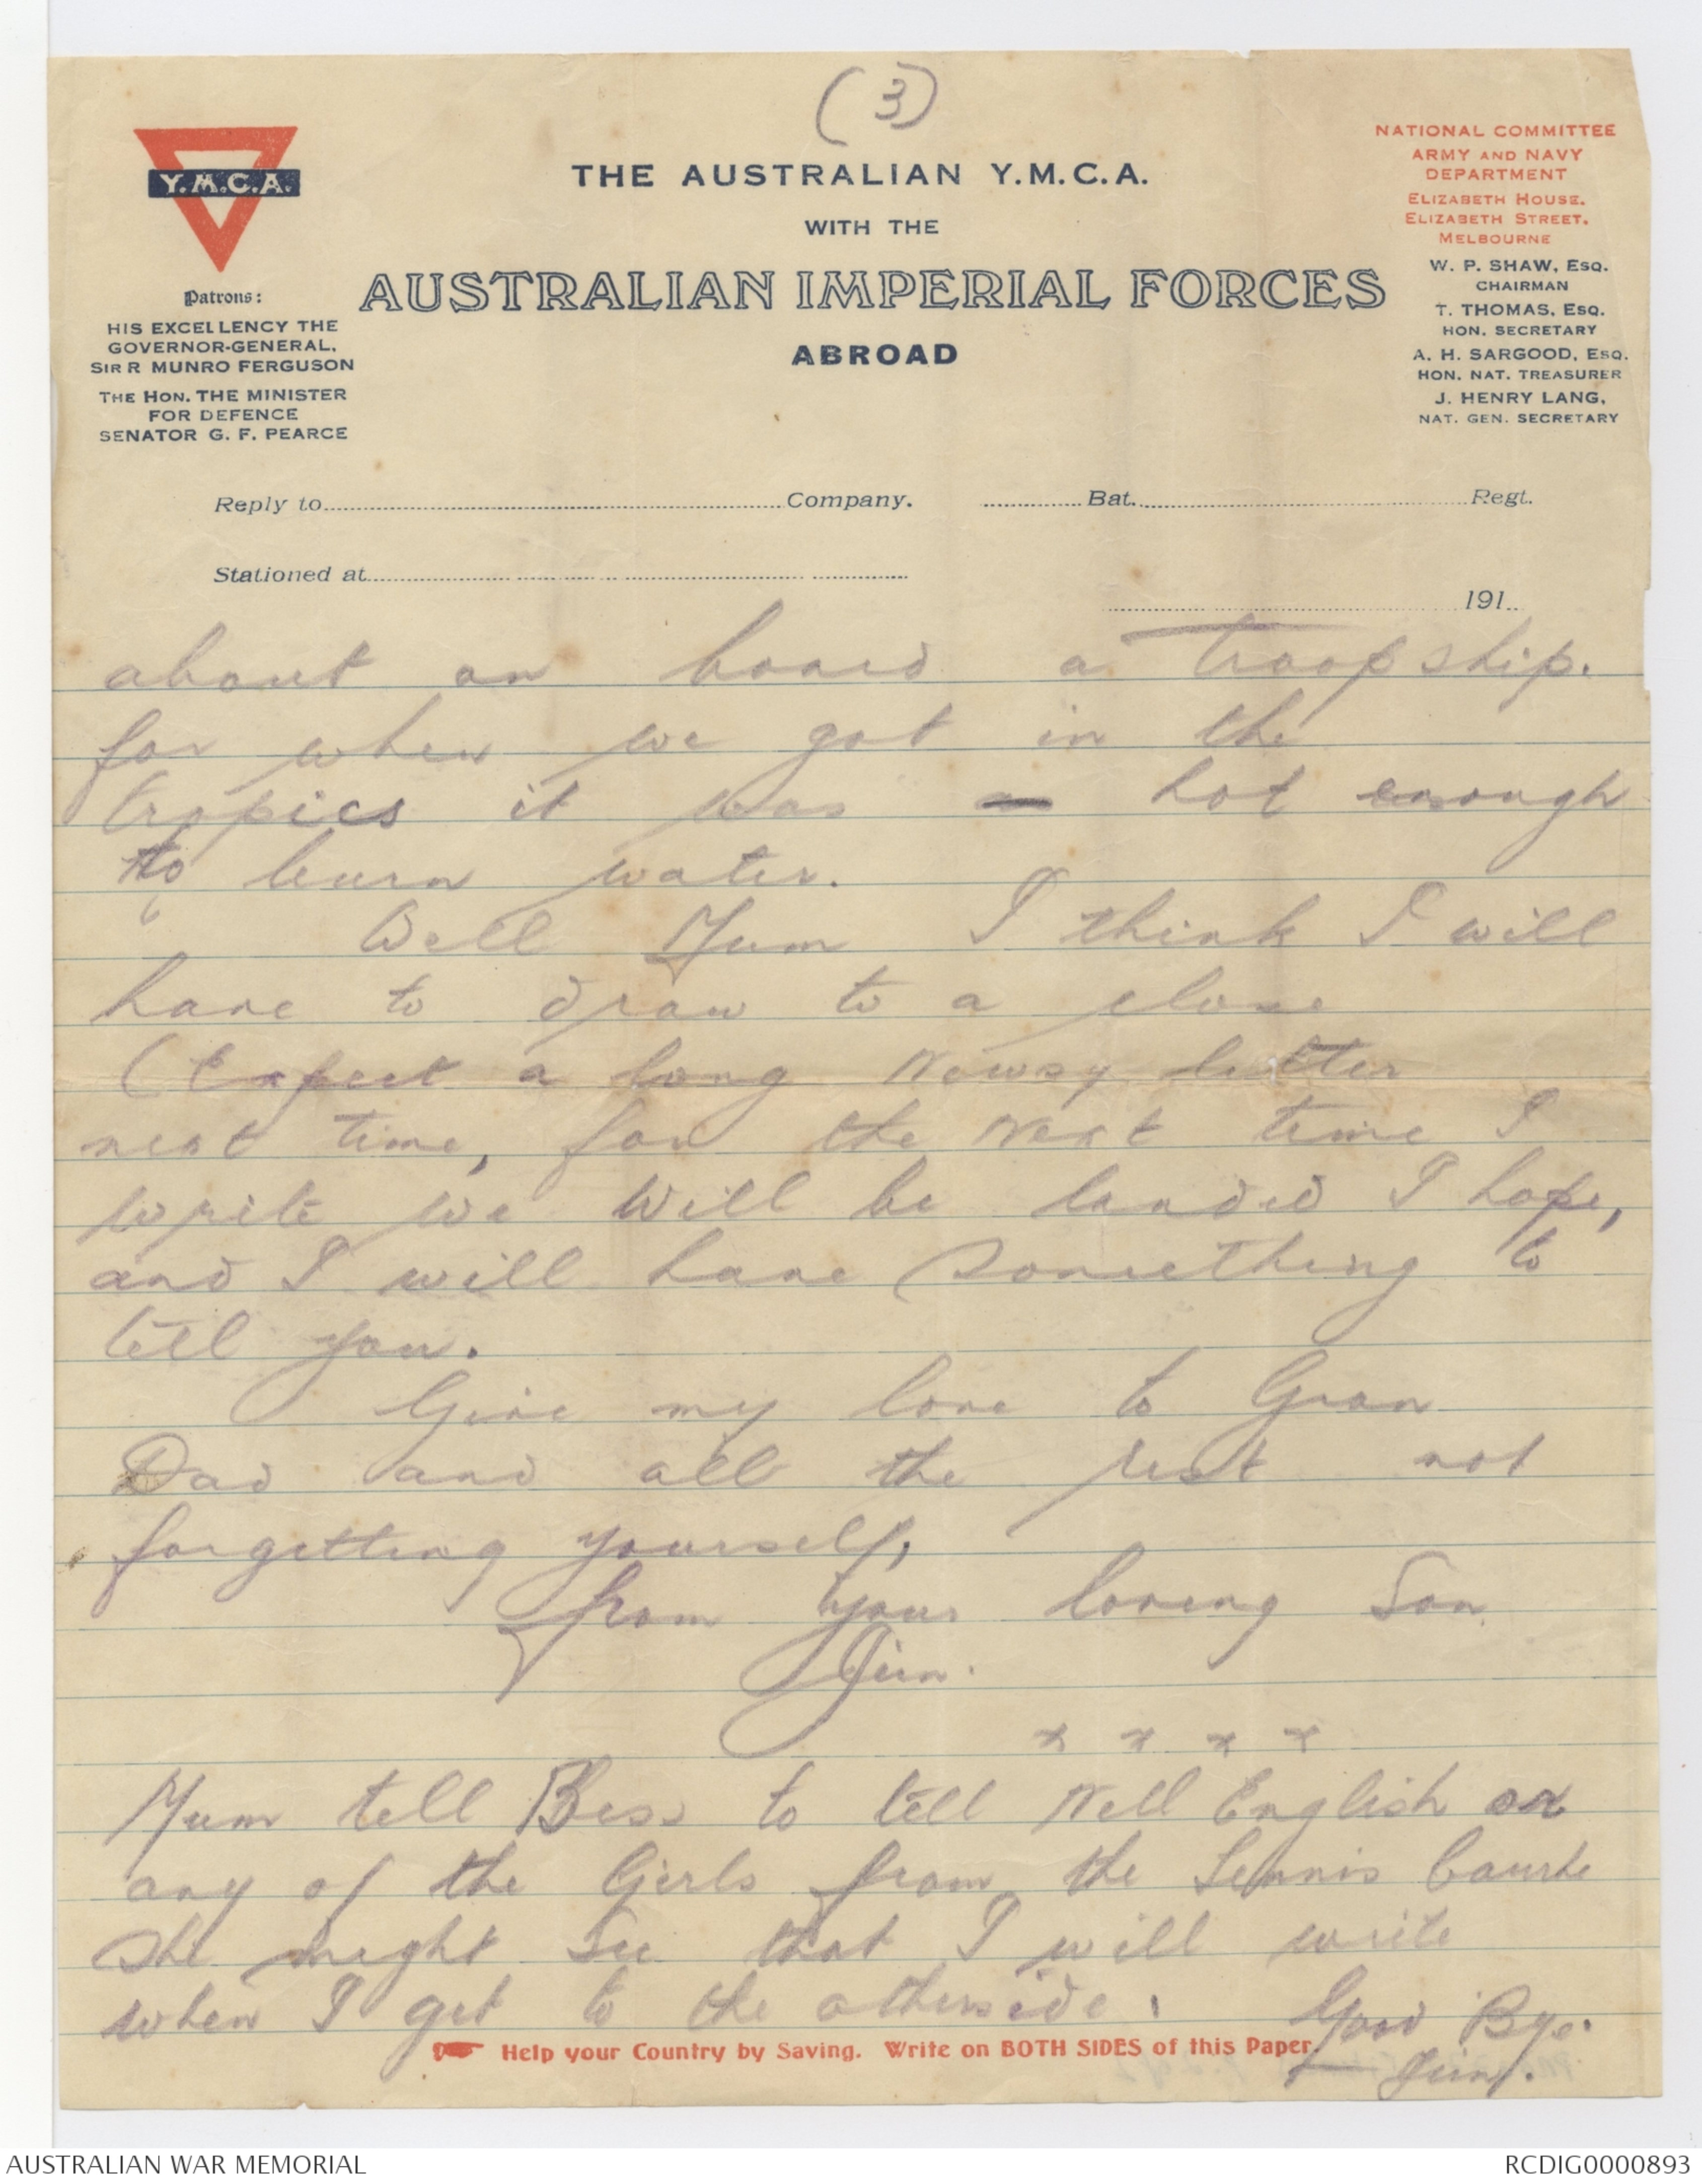 (3)
Y.M.C.A.
Patrons:
HIS EXCELLENCY THE
GOVERNOR-GENERAL,
SIR R MUNRO FERGUSON
THE HON. THE MINISTER
FOR DEFENCE
SENATOR G. F. PEARCE
THE AUSTRALIAN Y.M.C.A.
WITH THE
AUSTRALIAN IMPERIAL FORCES
ABROAD
NATIONAL COMMITTEE
ARMY AND NAVY
DEPARTMENT
ELIZABETH HOUSE.
ELIZABETH STREET.
MELBOURNE
W. P. SHAW, ESQ.
CHAIRMAN
T. THOMAS, ESQ.
HON. SECRETARY
A. H. SARGOOD, ESQ.
HON. NAT. TREASURER
J. HENRY LANG,
NAT. GEN. SECRETARY
Reply to Company. Bat. Regt.
Stationed at
191
about on board a troopship.
for when we got in the
tropics it was hot enough
to burn water.
Well Mum I think I will
have to draw to a close
(Expect a long Newsy letter
next time, for the Next time I
write we Will be landed I hope,
and I will have Something to
tell you.
Give my love to Gran
Dad and all the rest not
forgetting yourself,
from Your loving Son
Jim.
x x x x
Mum tell Bess to tell Nell English or
any of the Girls from the Tennis Courts
She might See that I will write
when I get to the otherside.
Good Bye.
Jim.
Help your Country by Saving. Write on BOTH SIDES of this Paper
AUSTRALIAN WAR MEMORIAL
RCDIG0000893